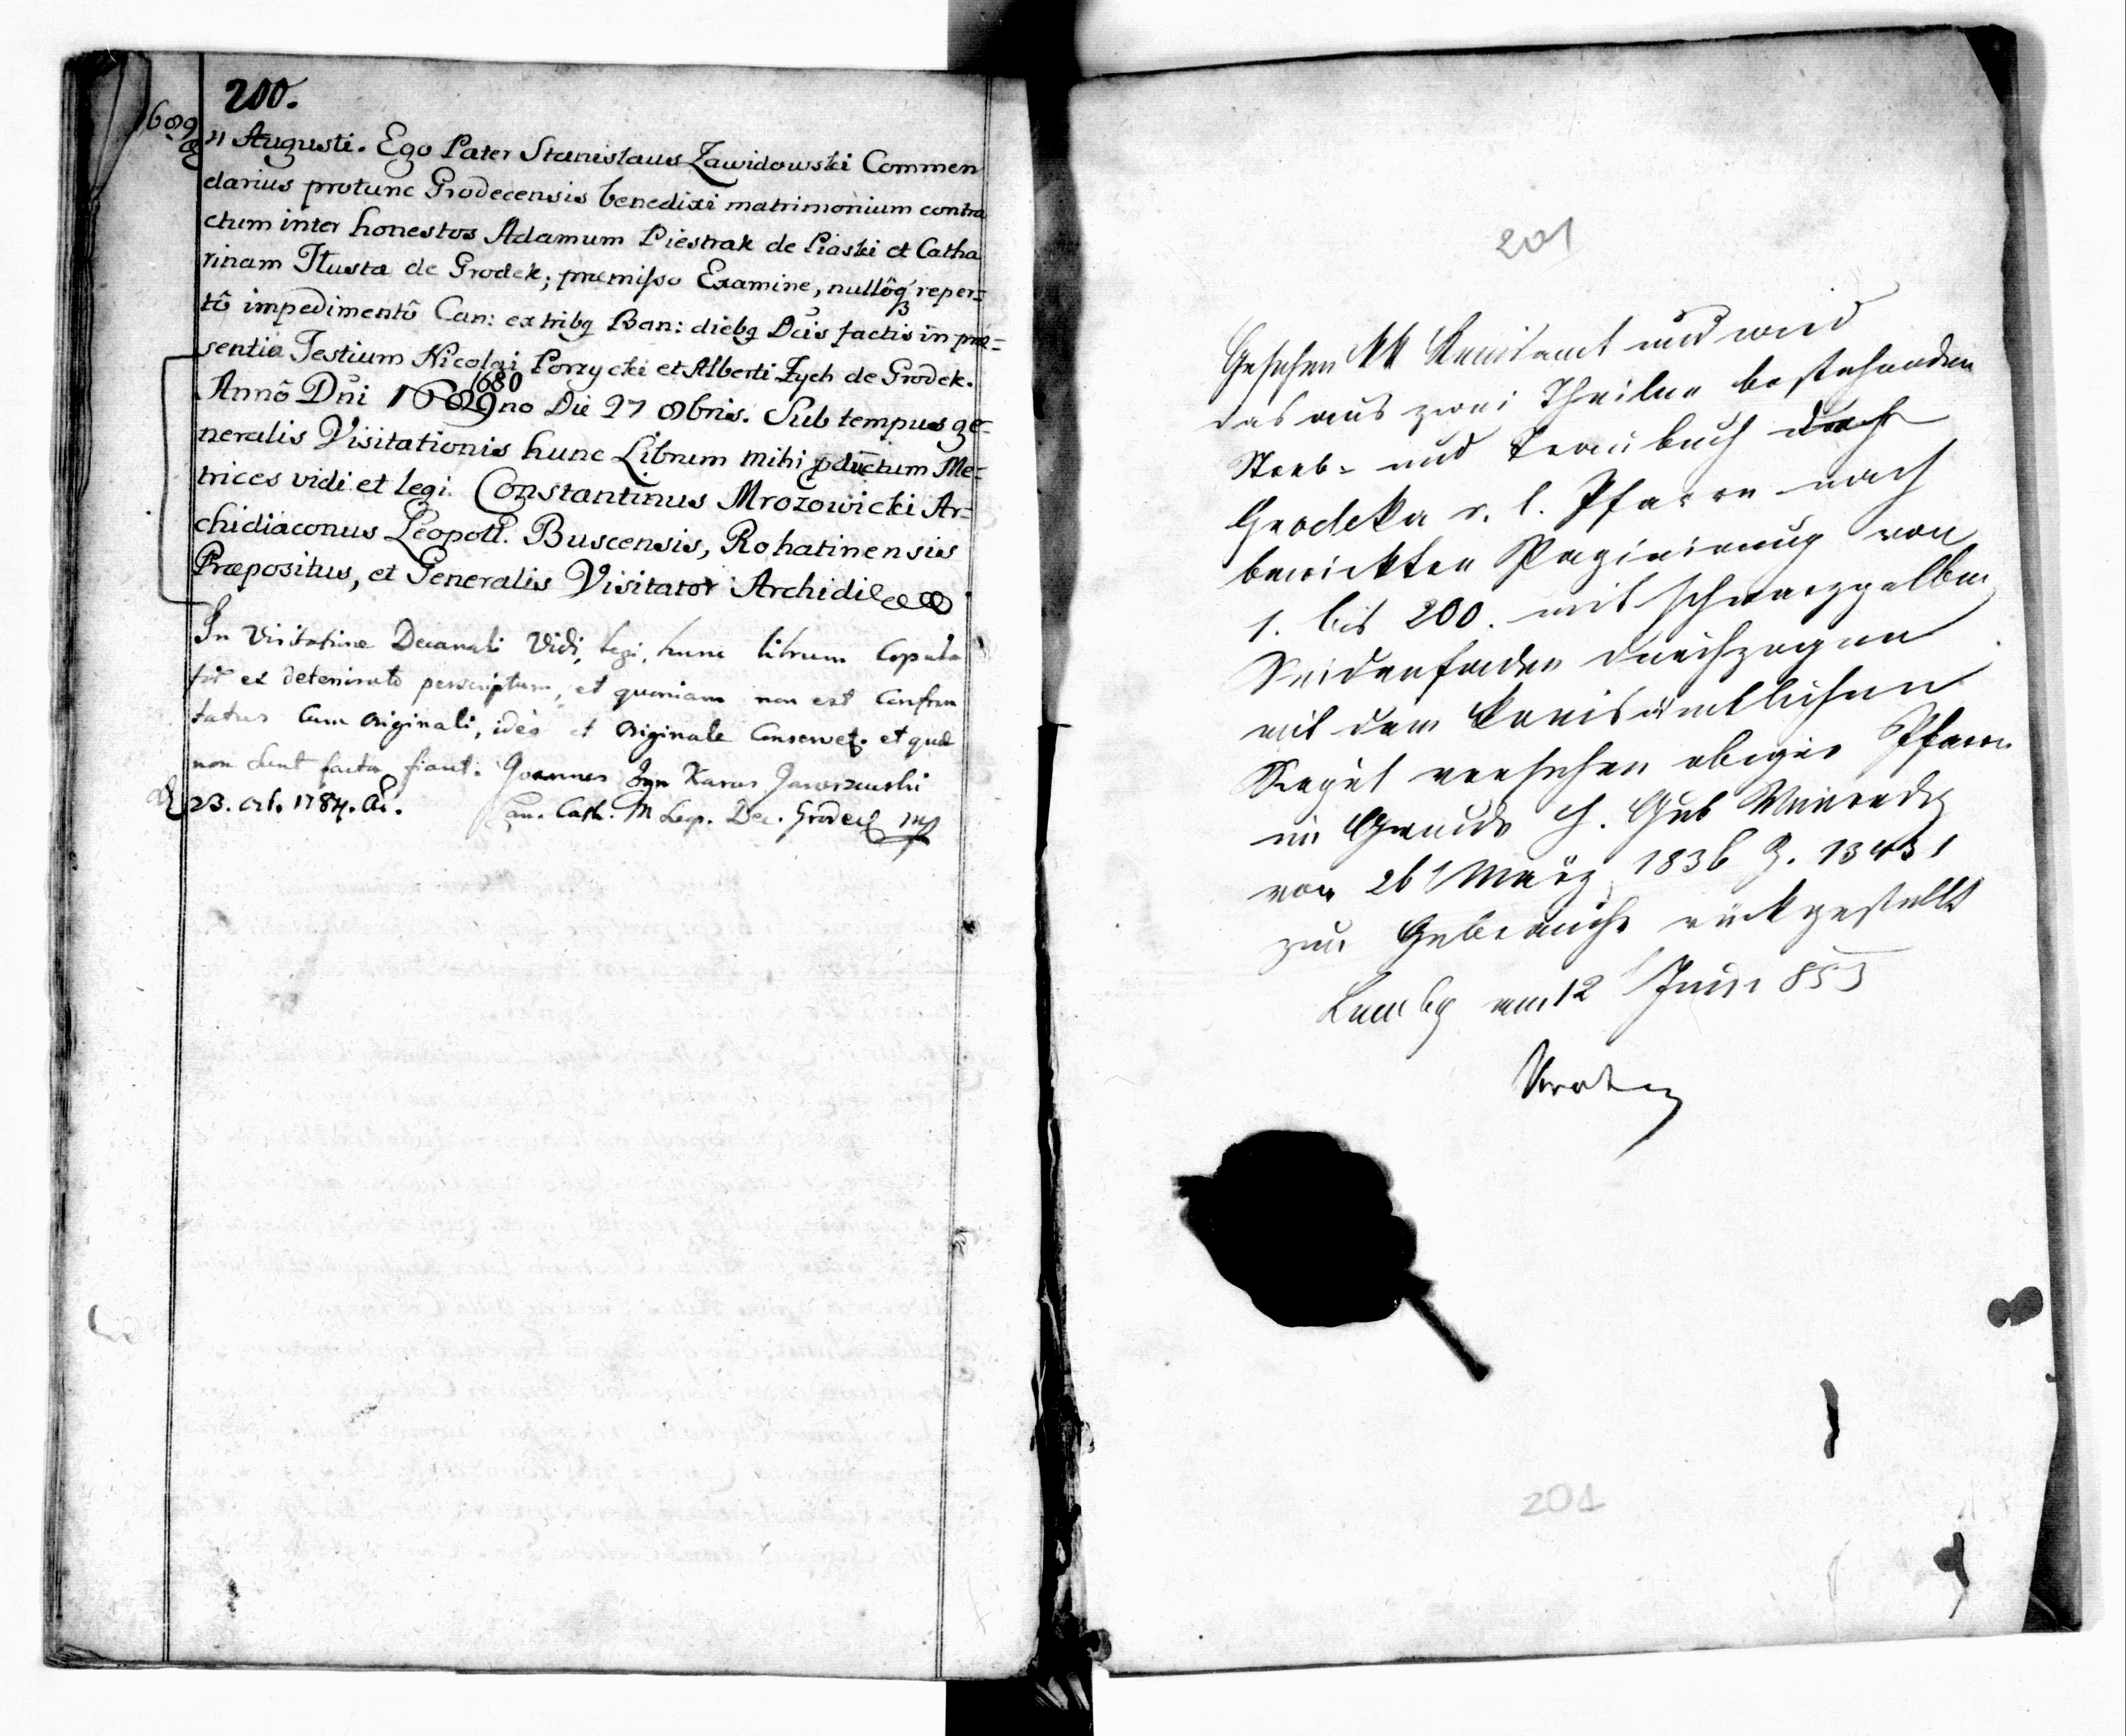 200.
1689
21 Augusti. Ego Pater Stanislaus Zawidowski Commen
darius protunc Grodecensis benedixi matrimonium contra
ctum inter honestos Adamum Piestrak de Piaski et Catha
rinam Tłusta de Grodek; præmisso Examine, nullôq reper=
tô impedimentô Can: ex tribq Ban: diebq Dñis factis in præ=
sentia Testium Nicolai Porzycki et Alberti Zych de Grodek.
1680
Annô Dñi 1689no Die 27 8bris. Sub tempus ge=
neralis Visitationis hunc Librum mihi pductum Me=
trices vidi et legi. Constantinus Mrozowicki Ar=
chidiaconus Leopoll. Buscensis, Rohatinensis
Præpositus, et Generalis Visitator Archidi
In Visitatione Decanali Vidi, legi, hunc librum Copula
ex deteriorato perscriptum, et quoniam non est Confron
tatus Cum Originali, ideo et Originale Conservet. et quæ
non sunt facta fiant. Joannes Karus Jaworzewski
23. Oct. 1784. Can. Cath. M Leop. Dec. Grodec mp
201
Gesehen KK Kreisamt und wird
das aus zwei Theilen bestehenden
Sterb- und Traubuch der
Grodeker r. l. Pfarre nach
bewirkter Paginirung von
1. bis 200. mit schwarzgelben
Seidenfaden durchzogen
mit dem kreisämtlichen
Siegel versehen obiger Pfarre
im Grunde h. Gub
vom 26 März 1836 Z. 13431
zum Gebrauche rückgestellt
Lembg am 12 Juni 853
201